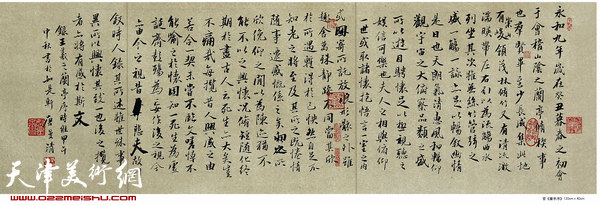 永和九年歲在癸丑暮春之初會
于會稽山陰之蘭亭脩稧事
也羣賢畢至少長咸集此地
有崇山峻領茂林脩竹又有清流激
湍暎帶左右引以為流觴曲水
列坐其次雖無絲竹管弦之
盛一觴一詠亦足以暢敘幽情
是日也天朗氣清惠風和暢仰
觀宇宙之大俯察品類之盛
所以遊目騁懷足以極視聽之
娛信可樂也夫人之相與俯仰
一世或取諸懷抱悟言一室之內
或因寄所託放浪形骸之外雖
趣舍萬殊靜躁不同當其欣
於所遇蹔得於己快然自足不
知老之將至及其所之既惓情
隨事遷感慨係之矣向之所
欣俛仰之間以為陳迹猶不
能不以之興懷況脩短隨化終
期於盡古人云死生亦大矣豈
不痛哉每攬昔人興感之由
若合一契未嘗不臨文嗟悼不
能喻之於懷固知一死生為虛
誕齊彭殤為妄作後之視今
亦由今之視昔悲夫故列
敘時人錄其所述雖世殊事
異所以興懷其致一也後之攬
者亦將有感於斯文
錄王羲之蘭亭序時
中秋書於
天津美術網
www.022meishu.com
书《蘭亭序》 130cm x 40cm